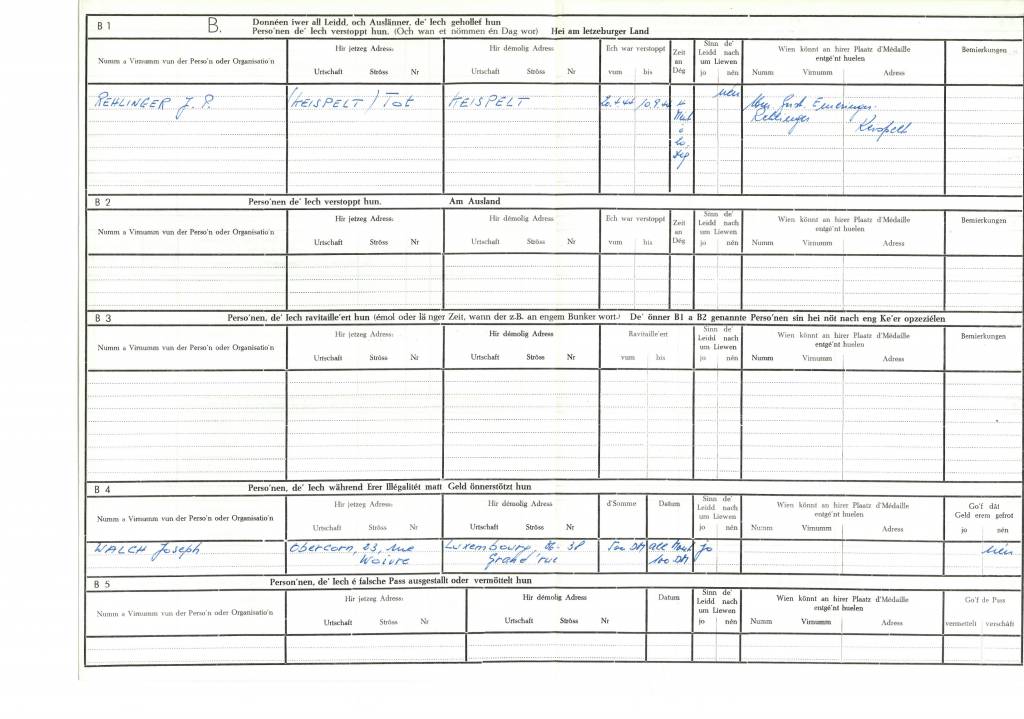 B 1
B.
Donnéen iwer all Leidd, och Auslänner, de' Iech gehollef hun
Perso'nen de' Iech verstoppt hun. (Och wan et nömmen én Dag wor) Hei am letzeburger Land
Numm a Virnumm vun der Perso'n oder Organisatio'n
Hir jetzeg Adress:
Urtschaft Ströss Nr
Hir démolig Adress:
Urtschaft Ströss Nr
Ech war verstoppt
vum bis
Zeit
an
Dég
Sinn de'
Leidd nach
um Liewen
jo nén
Wien könnt an hirer Plaatz d'Médaille
entgé'nt huelen
Numm Virnumm Adress
Bemierkungen
REHLINGER J. P.
(KEISPELT) Tot
KEISPELT
nén
Rehlinger
Kerspelt
B 2
Perso'nen de' Iech verstoppt hun. Am Ausland
Numm a Virnumm vun der Perso'n oder Organisatio'n
Hir jetzeg Adress:
Urtschaft Ströss Nr
Hir démolig Adress:
Urtschaft Ströss Nr
Ech war verstoppt
vum bis
Zeit
an
Dég
Sinn de'
Leidd nach
um Liewen
jo nén
Wien könnt an hirer Plaatz d'Médaille
entgé'nt huelen
Numm Virnumm Adress
Bemierkungen
B 3
Perso'nen, de' Iech ravitaille'ert hun (émol oder länger Zeit, wann der z.B. an engem Bunker wort.) De' önner B1 a B2 genannte Perso'nen sin hei nöt nach eng Ke'er opzezíélen
Numm a Virnumm vun der Perso'n oder Organisatio'n
Hir jetzeg Adress:
Urtschaft Ströss Nr
Hir démolig Adress:
Urtschaft Ströss Nr
Ravitaille'ert
vum bis
Sinn de'
Leidd nach
um Liewen
jo nén
Wien könnt an hirer Plaatz d'Médaille
entgé'nt huelen
Numm Virnumm Adress
Bemierkungen
B 4
Perso'nen, de' Iech während Erer Illégalitét matt Geld önnerstötzt hun
Numm a Virnumm vun der Perso'n oder Organisatio'n
Hir jetzeg Adress:
Urtschaft Ströss Nr
Hir démolig Adress:
Urtschaft Ströss Nr
d'Somme
Datum
Sinn de'
Leidd nach
um Liewen
jo nén
Wien könnt an hirer Plaatz d'Médaille
entgé'nt huelen
Numm Virnumm Adress
Go'f dât
Geld erem gefrot
jo nén
WALCH Joseph
Obercorn, 23, rue
Woivre
Luxembourg,
Grand'rue
100 DM
jo
nén
B 5
Person'nen, de' Iech é falsche Pass ausgestallt oder vermöttelt hun
Numm a Virnumm vun der Perso'n oder Organisatio'n
Hir jetzeg Adress:
Urtschaft Ströss Nr
Hir démolig Adress:
Urtschaft Ströss Nr
Datum
Sinn de'
Leidd nach
um Liewen
jo nén
Wien könnt an hirer Plaatz d'Médaille
entgé'nt huelen
Numm Virnumm Adress
Go'f de Pass
vermettelt verschâft